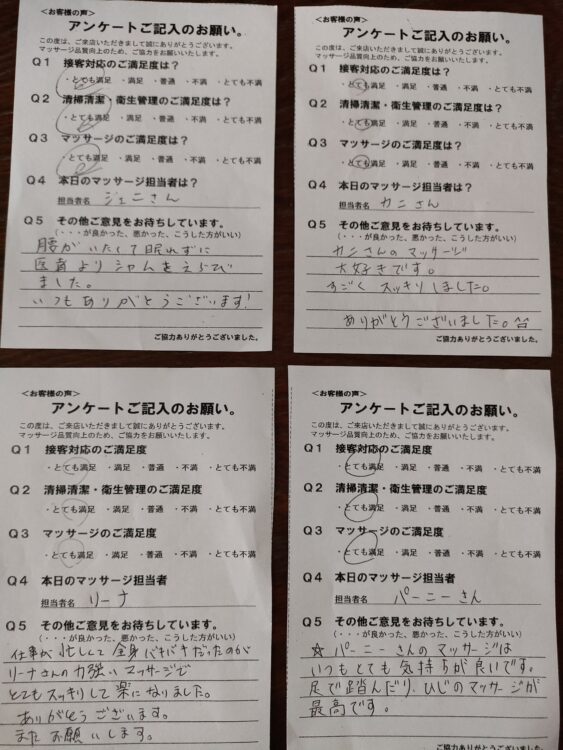 <お客様の声>
アンケートご記入のお願い。
この度は、ご来店いただきまして誠にありがとうございます。
マッサージ品質向上のため、ご協力をお願いいたします。
Q1 接客対応のご満足度は?
・とても満足 ・満足 ・普通 ・不満 ・とても不満
Q2 清掃清潔・衛生管理のご満足度は?
・とても満足 ・満足 ・普通 ・不満 ・とても不満
Q3 マッサージのご満足度は?
・とても満足 ・満足 ・普通 ・不満 ・とても不満
Q4 本日のマッサージ担当者は?
担当者名 ジェニさん
Q5 その他ご意見をお待ちしています。
(・・・が良かった、悪かった、こうした方がいい)
腰がいたくて眠れずに
医者よりシャムをえらび
ました。
いつもありがとうございます!
ご協力ありがとうございました。
<お客様の声>
アンケートご記入のお願い。
この度は、ご来店いただきまして誠にありがとうございます。
マッサージ品質向上のため、ご協力をお願いいたします。
Q1 接客対応のご満足度は?
・とても満足 ・満足 ・普通 ・不満 ・とても不満
Q2 清掃清潔・衛生管理のご満足度は?
・とても満足 ・満足 ・普通 ・不満 ・とても不満
Q3 マッサージのご満足度は?
・とても満足 ・満足 ・普通 ・不満 ・とても不満
Q4 本日のマッサージ担当者は?
担当者名 カニさん
Q5 その他ご意見をお待ちしています。
(・・・が良かった、悪かった、こうした方がいい)
カニさんのマッサージ
大好きです。
すごくスッキリしました。
ありがとうございました。
ご協力ありがとうございました。
<お客様の声>
アンケートご記入のお願い。
この度は、ご来店いただきまして誠にありがとうございます。
マッサージ品質向上のため、ご協力をお願いいたします。
Q1 接客対応のご満足度
・とても満足 ・満足 ・普通 ・不満 ・とても不満
Q2 清掃清潔・衛生管理のご満足度
・とても満足 ・満足 ・普通 ・不満 ・とても不満
Q3 マッサージのご満足度
・とても満足 ・満足 ・普通 ・不満 ・とても不満
Q4 本日のマッサージ担当者
担当者名 リーナ
Q5 その他ご意見をお待ちしています。
(・・・が良かった、悪かった、こうした方がいい)
仕事が忙しくて全身バキバキだったのが
リーナさんの力強いマッサージで
とてもスッキリして楽になりました。
ありがとうございます。
またお願いします。
<お客様の声>
アンケートご記入のお願い。
この度は、ご来店いただきまして誠にありがとうございます。
マッサージ品質向上のため、ご協力をお願いいたします。
Q1 接客対応のご満足度
・とても満足 ・満足 ・普通 ・不満 ・とても不満
Q2 清掃清潔・衛生管理のご満足度
・とても満足 ・満足 ・普通 ・不満 ・とても不満
Q3 マッサージのご満足度
・とても満足 ・満足 ・普通 ・不満 ・とても不満
Q4 本日のマッサージ担当者
担当者名 パーニーさん
Q5 その他ご意見をお待ちしています。
(・・・が良かった、悪かった、こうした方がいい)
☆パーニーさんのマッサージは
いつもとても気持ちが良いです。
足で踏んだり、ひじのマッサージが
最高です。